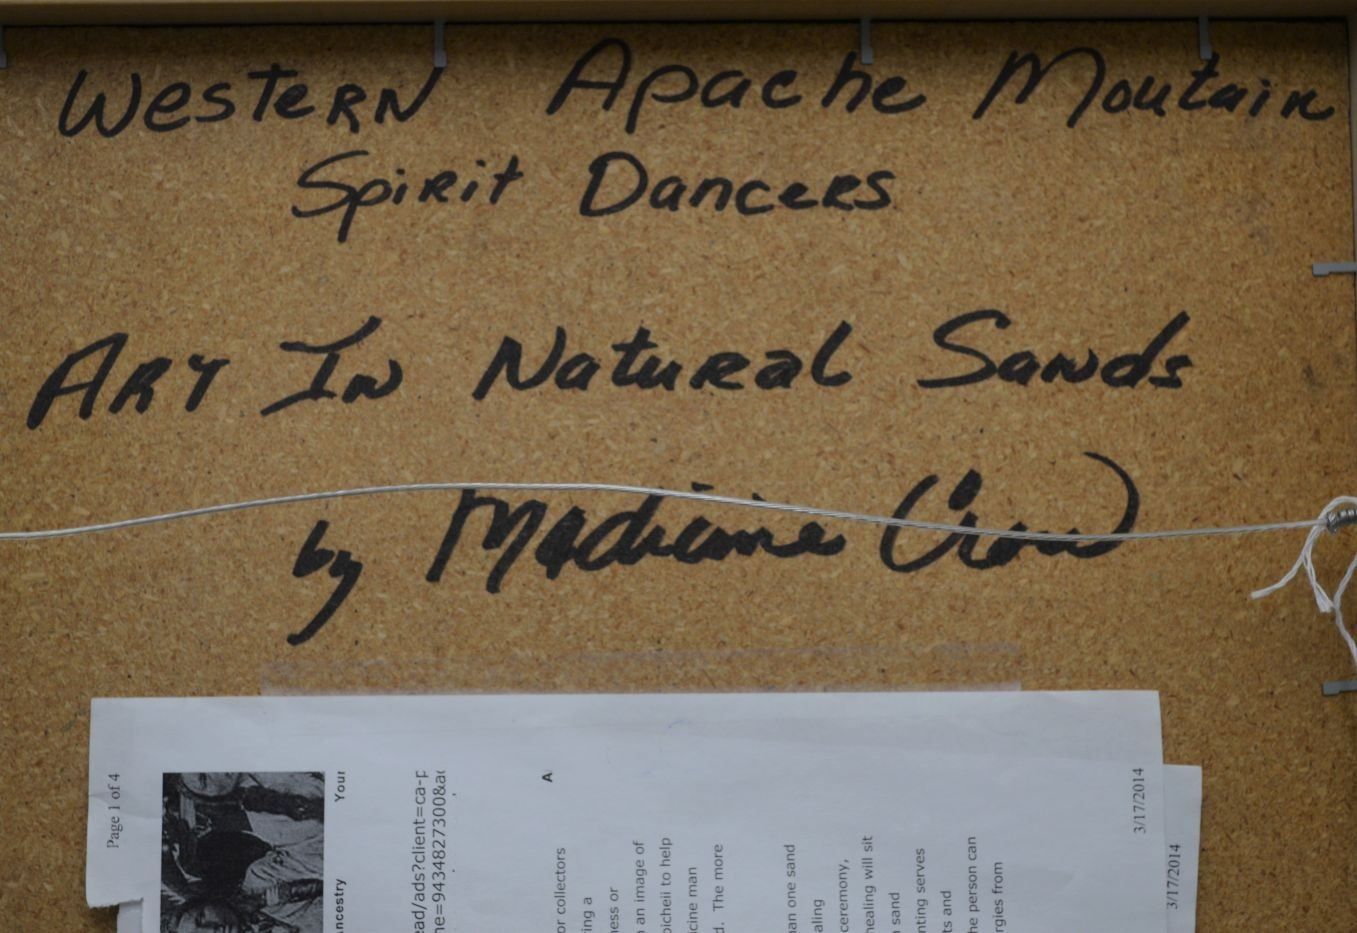 Western Apache Moutain
Spirit Dancers
Art In Natural Sands
by Medicine Crow
Page 1 of 4
Your
ncestry
ead/ads?client=ca-p
ne=9434827300&ad
A
or collectors
ing a
ness or
n an image of
picheii to help
icine man
d. The more
han one sand
aling
ceremony,
healing will sit
sand
nting serves
ts and
he person can
rgies from
3/17/2014
3/17/2014